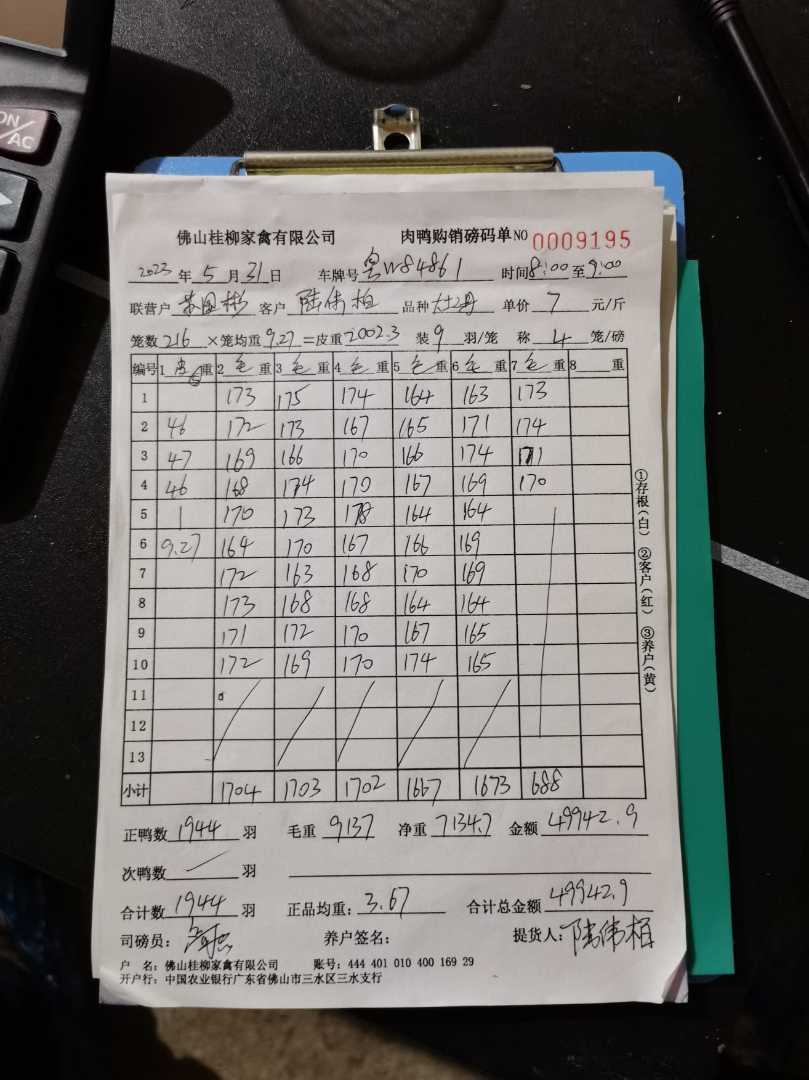 ON/AC
佛山桂柳家禽有限公司 肉鸭购销磅码单 NO 0009195
2023 年 5 月 31 日 车牌号 粤W84861 时间 8:00 至 9:00
联营户 客户 陆伟柏 品种 单价 7 元/斤
笼数 216 ×笼均重 9.27 =皮重 2002.3 装 9 羽/笼 称 4 笼/磅
编号 1 皮 重 2 毛 重 3 毛 重 4 毛 重 5 毛 重 6 毛 重 7 毛 重 8 重
1 173 175 174 164 163 173
2 46 172 173 167 165 171 174
3 47 169 166 170 166 174 171
4 46 168 174 170 167 169 170
5 1 170 173 178 164 164
6 9.27 164 170 167 166 169
7 172 163 168 170 169
8 173 168 168 164 164
9 171 172 170 167 165
10 172 169 170 174 165
11
12
13
小计 1704 1703 1702 1667 1673 688
正鸭数 1944 羽 毛重 9137 净重 7134.7 金额 49942.9
次鸭数 羽
合计数 1944 羽 正品均重: 3.67 合计总金额 49942.9
司磅员: 养户签名: 提货人: 陆伟柏
户 名: 佛山桂柳家禽有限公司 账号: 444 401 010 400 169 29
开户行: 中国农业银行广东省佛山市三水区三水支行
①存根(白) ②客户(红) ③养户(黄)